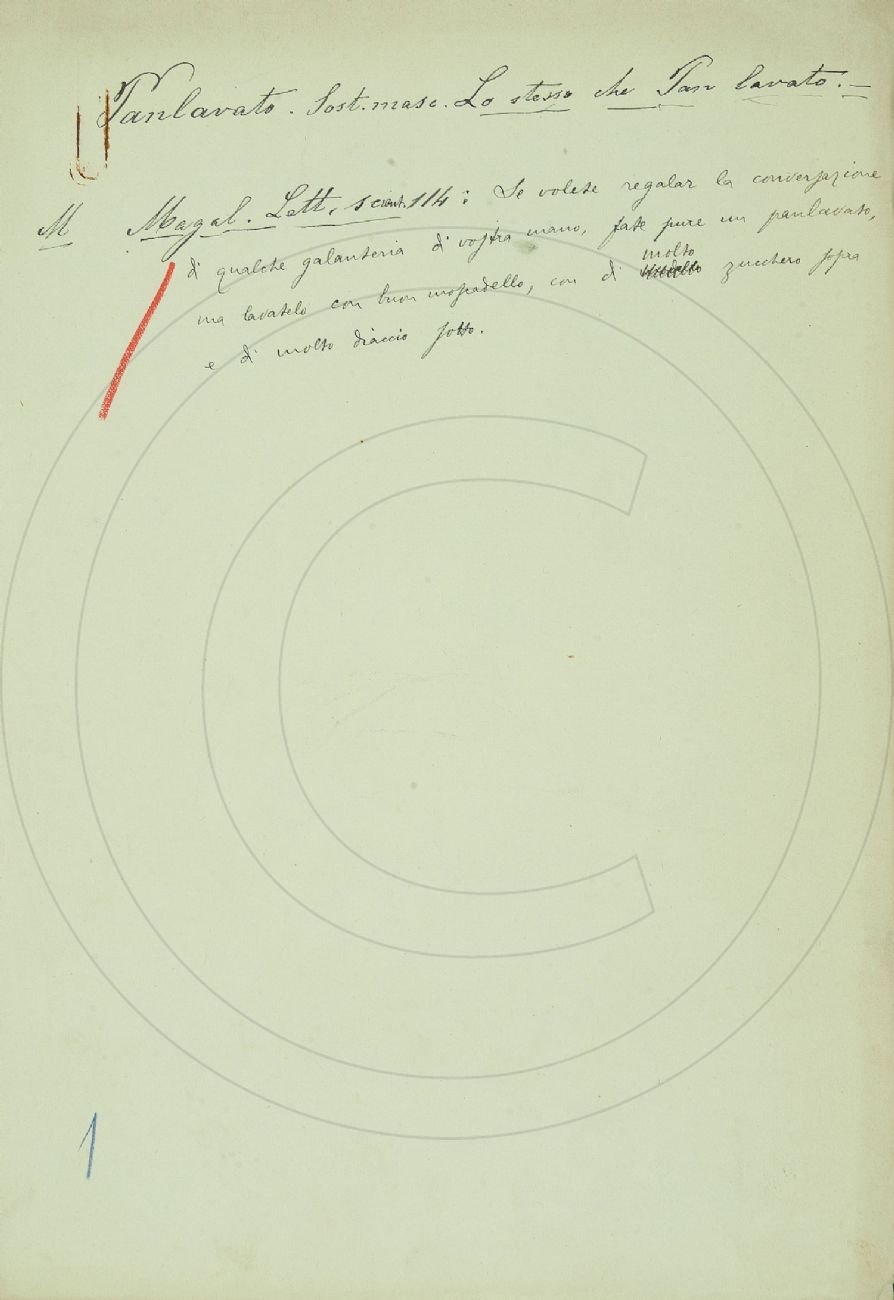 Panlavato. Sost. masc. Lo stesso che Pan lavato. —
M Magal. Lett. scient. 114: Se volete regalar la conversazione
di qualche galanteria di vostra mano, fate pure un panlavato,
ma lavatelo con buon moscadello, con di molto zucchero sopra
e di molto diaccio sotto.
1